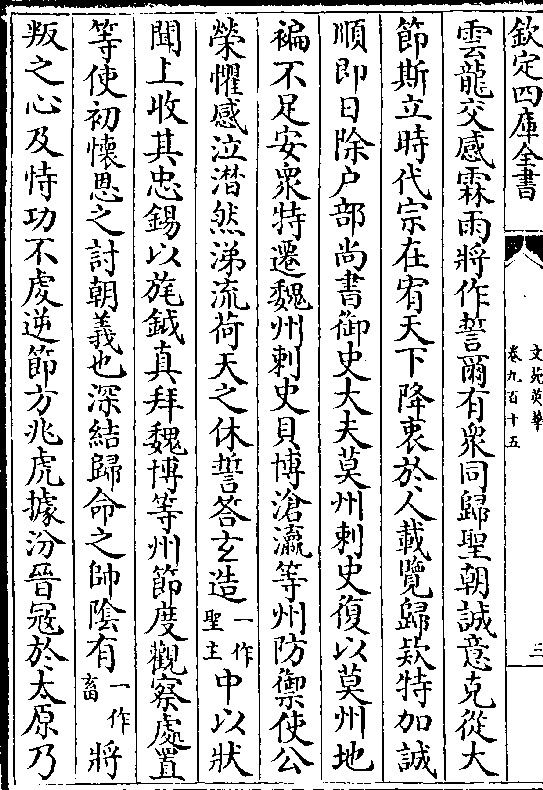 欽定四庫全書
文苑英華
卷九百十五
三
雲龍交感霖雨將作誓爾有衆同歸聖朝誠意克從大
節斯立時代宗在宥天下降衷於人載覽歸欵特加誠
順即日除户部尚書御史大夫莫州刺史復以莫州地
褊不足安衆特遷魏州刺史貝博滄瀛等州防禦使公
榮懼感泣潸然涕流荷天之休誓答玄造一作聖主中以狀
聞上收其忠錫以旄鉞真拜魏博等州節度觀察處置
等使初懷恩之討朝義也深結歸命之帥陰有一作畜將
叛之心及恃功不虔逆節方兆虎據汾晉冦於太原乃